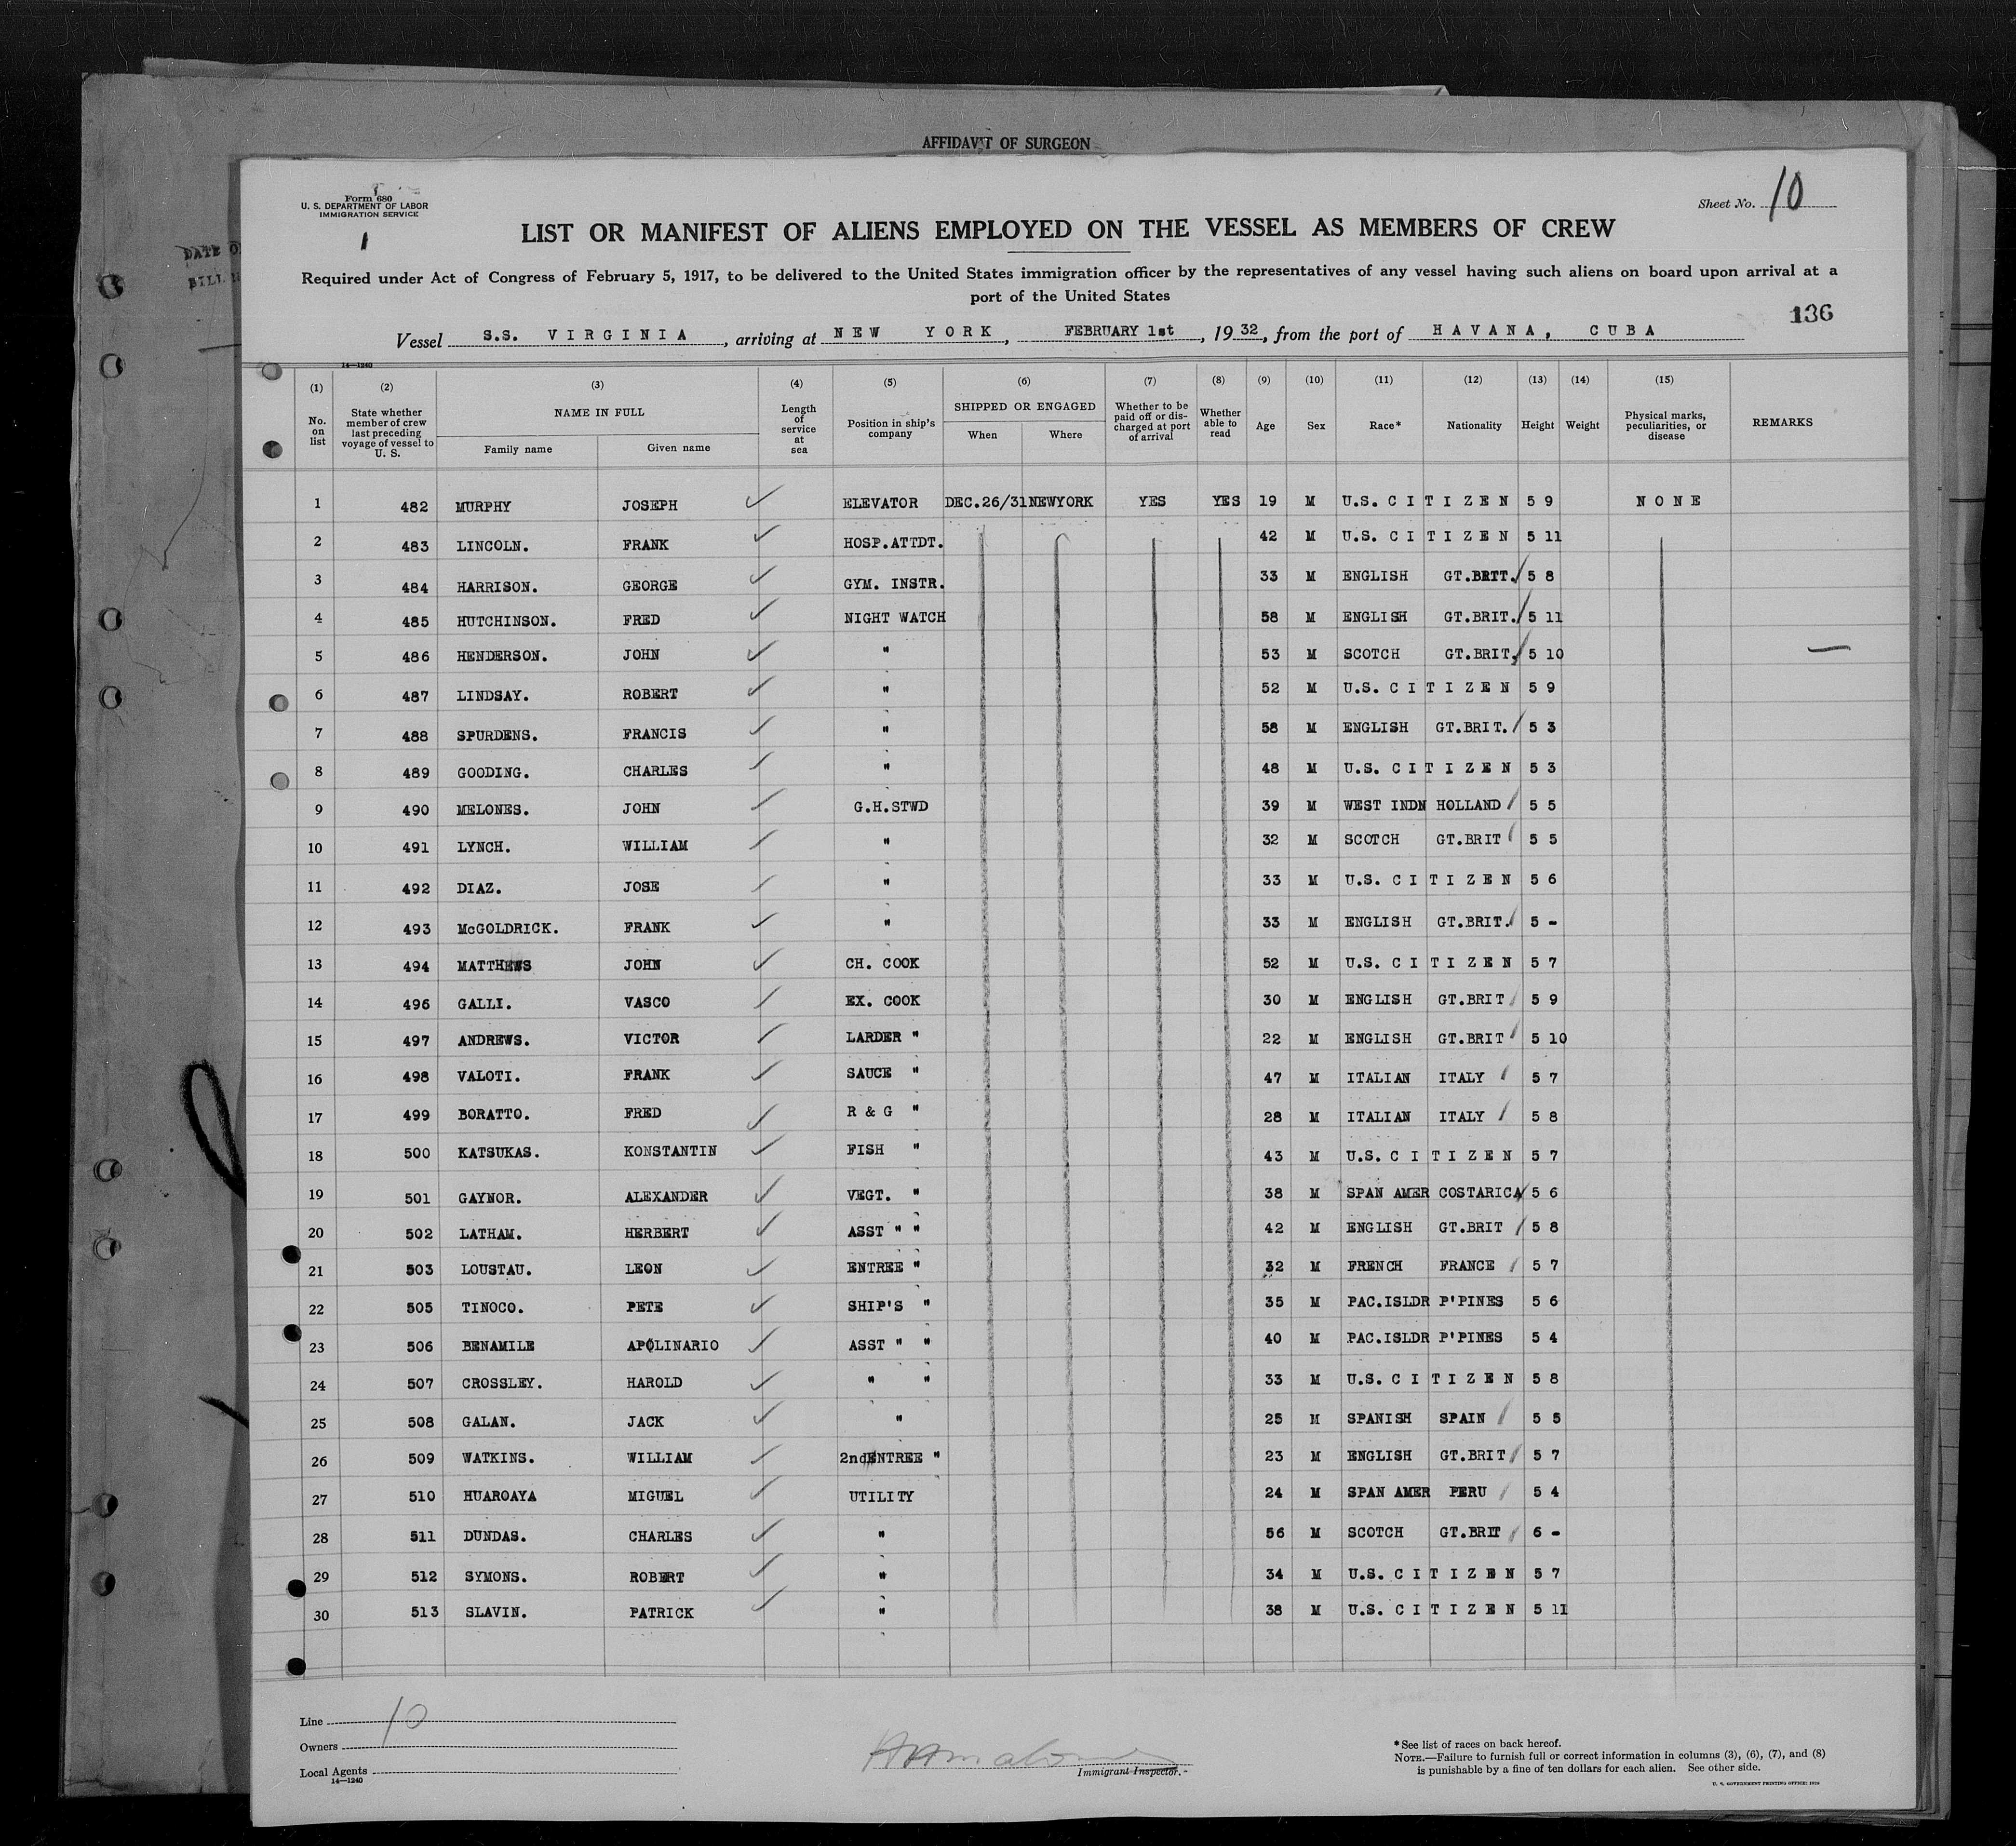 AFFIDAVIT OF SURGEON
DATE O
BILL
Form 680
U. S. DEPARTMENT OF LABOR
IMMIGRATION SERVICE
1
Sheet No. 10
LIST OR MANIFEST OF ALIENS EMPLOYED ON THE VESSEL AS MEMBERS OF CREW
Required under Act of Congress of February 5, 1917, to be delivered to the United States immigration officer by the representatives of any vessel having such aliens on board upon arrival at a
port of the United States
136
Vessel S.S. VIRGINIA, arriving at NEW YORK, FEBRUARY 1st, 1932, from the port of HAVANA, CUBA
14—1240
(1) (2) (3) (4) (5) (6) (7) (8) (9) (10) (11) (12) (13) (14) (15)
No. on list State whether member of crew last preceding voyage of vessel to U. S. NAME IN FULL Family name Given name Length of service at sea Position in ship's company SHIPPED OR ENGAGED When Where Whether to be paid off or discharged at port of arrival Whether able to read Age Sex Race* Nationality Height Weight Physical marks, peculiarities, or disease REMARKS
1 482 MURPHY JOSEPH ELEVATOR DEC.26/31 NEWYORK YES YES 19 M U.S. CITIZEN 5 9 NONE
2 483 LINCOLN. FRANK HOSP.ATTDT. 42 M U.S. CITIZEN 5 11
3 484 HARRISON. GEORGE GYM. INSTR. 33 M ENGLISH GT.BRIT. 5 8
4 485 HUTCHINSON. FRED NIGHT WATCH 58 M ENGLISH GT.BRIT. 5 11
5 486 HENDERSON. JOHN " 53 M SCOTCH GT.BRIT. 5 10 —
6 487 LINDSAY. ROBERT " 52 M U.S. CITIZEN 5 9
7 488 SPURDENS. FRANCIS " 58 M ENGLISH GT.BRIT. 5 3
8 489 GOODING. CHARLES " 48 M U.S. CITIZEN 5 3
9 490 MELONES. JOHN G.H.STWD 39 M WEST INDN HOLLAND 5 5
10 491 LYNCH. WILLIAM " 32 M SCOTCH GT.BRIT 5 5
11 492 DIAZ. JOSE " 33 M U.S. CITIZEN 5 6
12 493 McGOLDRICK. FRANK " 33 M ENGLISH GT.BRIT. 5 -
13 494 MATTHEWS JOHN CH. COOK 52 M U.S. CITIZEN 5 7
14 496 GALLI. VASCO EX. COOK 30 M ENGLISH GT.BRIT 5 9
15 497 ANDREWS. VICTOR LARDER " 22 M ENGLISH GT.BRIT 5 10
16 498 VALOTI. FRANK SAUCE " 47 M ITALIAN ITALY 5 7
17 499 BORATTO. FRED R & G " 28 M ITALIAN ITALY 5 8
18 500 KATSUKAS. KONSTANTIN FISH " 43 M U.S. CITIZEN 5 7
19 501 GAYNOR. ALEXANDER VEGT. " 38 M SPAN AMER COSTARICA 5 6
20 502 LATHAM. HERBERT ASST " " 42 M ENGLISH GT.BRIT 5 8
21 503 LOUSTAU. LEON ENTREE " 32 M FRENCH FRANCE 5 7
22 505 TINOCO. PETE SHIP'S " 35 M PAC.ISLDR P'PINES 5 6
23 506 BENAMILE APOLINARIO ASST " " 40 M PAC.ISLDR P'PINES 5 4
24 507 CROSSLEY. HAROLD " " 33 M U.S. CITIZEN 5 8
25 508 GALAN. JACK " 25 M SPANISH SPAIN 5 5
26 509 WATKINS. WILLIAM 2ndENTREE " 23 M ENGLISH GT.BRIT 5 7
27 510 HUAROAYA MIGUEL UTILITY 24 M SPAN AMER PERU 5 4
28 511 DUNDAS. CHARLES " 56 M SCOTCH GT.BRIT 6 -
29 512 SYMONS. ROBERT " 34 M U.S. CITIZEN 5 7
30 513 SLAVIN. PATRICK " 38 M U.S. CITIZEN 5 11
Line 10
Owners
Local Agents
14—1240
Immigrant Inspector.
*See list of races on back hereof.
NOTE.—Failure to furnish full or correct information in columns (3), (6), (7), and (8)
is punishable by a fine of ten dollars for each alien. See other side.
U. S. GOVERNMENT PRINTING OFFICE: 1929